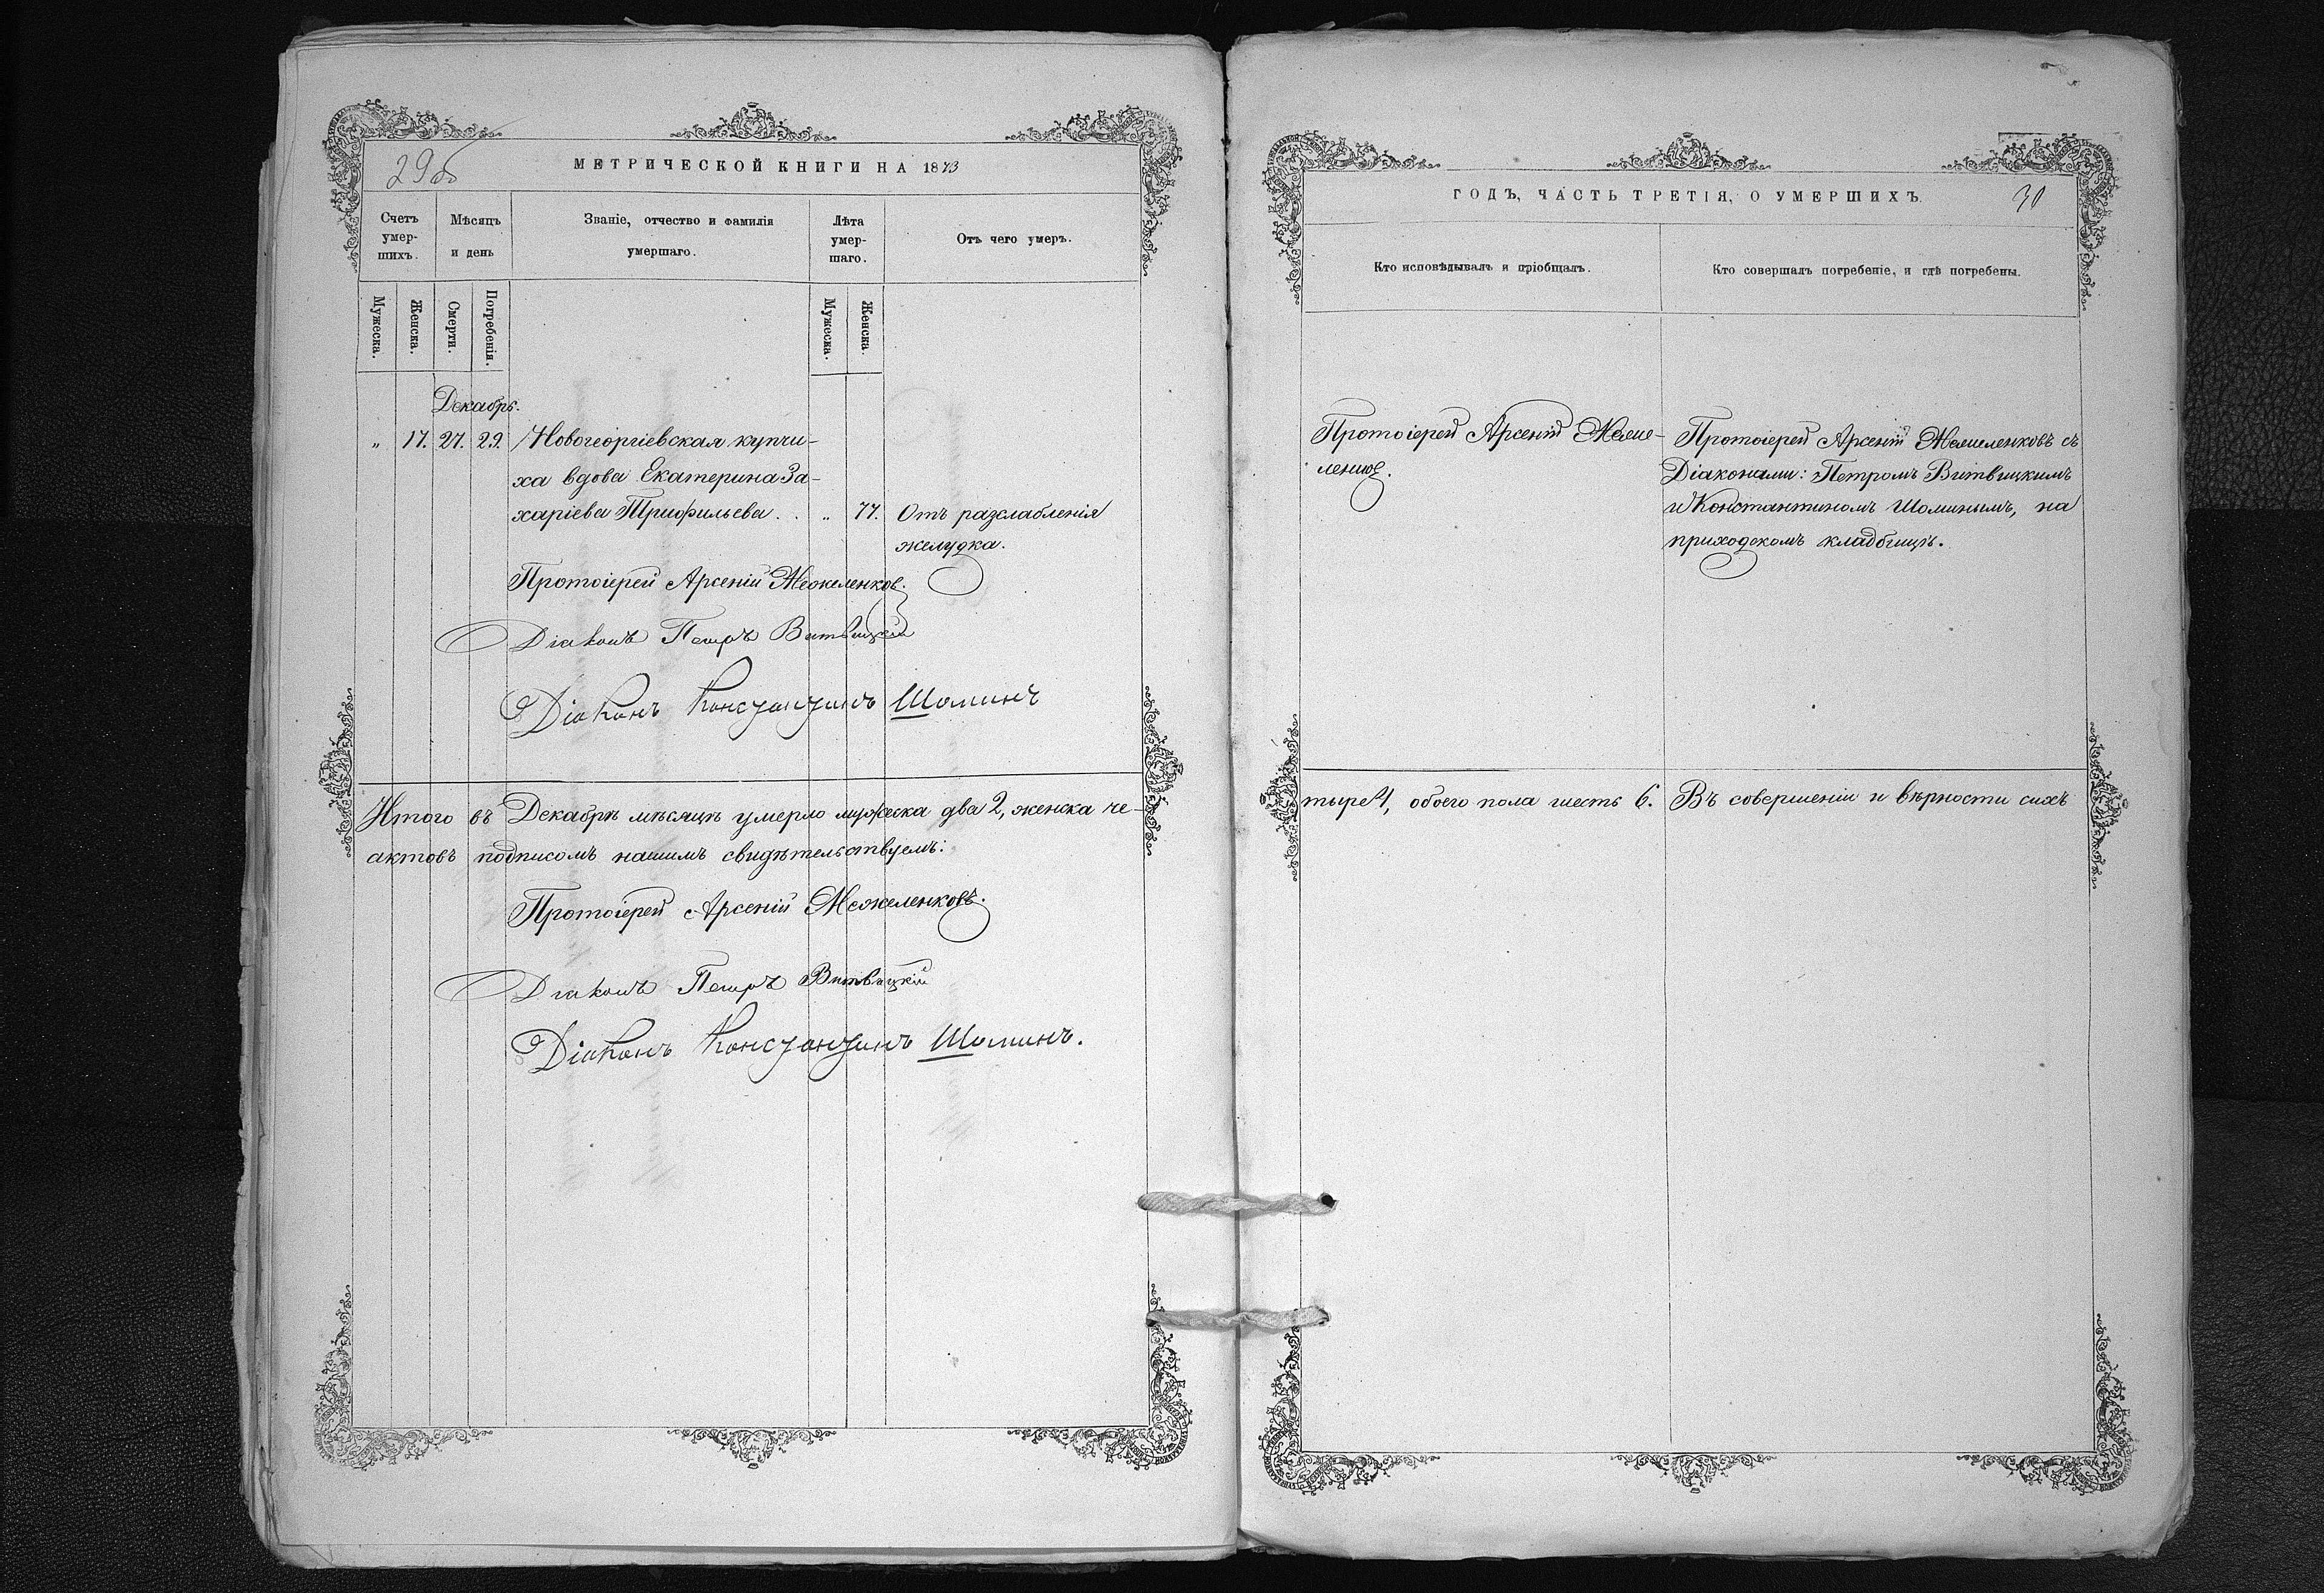 29об
МЕТРИЧЕСКОЙ КНИГИ НА 1873
Счетъ умер-шихъ.
Мѣсяцъ и день
Званіе, отчество и фамилія умершаго.
Лѣта умер-шаго.
Отъ чего умеръ.
Мужеска.
Женска.
Смерти.
Погребенія.
Мужеска.
Женска.
Декабрь.
„ 17. 27. 29. Новогеоргіевская купчи-
ха вдова Екатерина За-
харіева Трифильева . . „ 77. Отъ разслабленія
желудка.
Протоіерей Арсеній Межеленков.
Діаконъ Петръ Витвицкій
Діаконъ Константинъ Шоминъ
Итого въ Декабрѣ мѣсяцѣ умерло мужеска два 2, женска че-
актовъ подписомъ нашимъ свидѣтельствуемъ:
Протоіерей Арсеній Межеленковъ.
Діаконъ Петръ Витвицкій
Діаконъ Константинъ Шоминъ.
ГОДЪ, ЧАСТЬ ТРЕТІЯ, О УМЕРШИХЪ.
30
Кто исповѣдывалъ и пріобщалъ.
Кто совершалъ погребеніе, и гдѣ погребены.
Протоіерей Арсеній Меже-
ленков.
Протоіерей Арсеній Межеленковъ съ
Діаконами: Петромъ Витвицкимъ
и Константиномъ Шоминымъ, на
приходскомъ кладбищѣ.
тыре 4, обоего пола шесть 6. Въ совершеніи и вѣрности сихъ